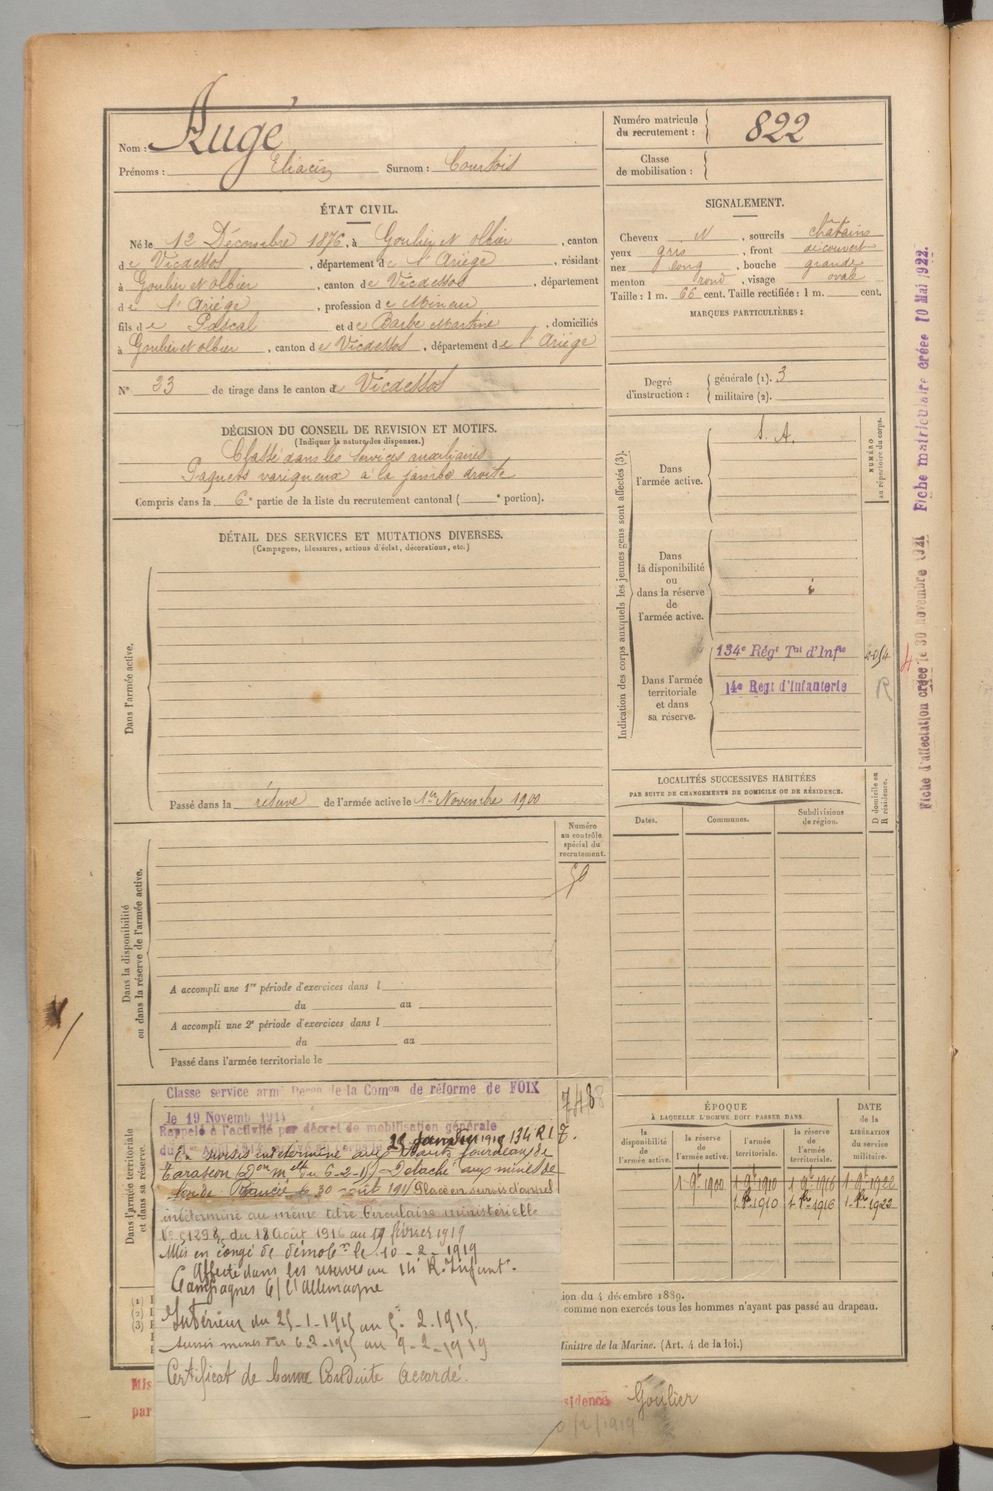 Nom : Augé
Prénoms : Eliacin Surnom : Courtois
Numéro matricule du recrutement : 822
Classe de mobilisation :
ÉTAT CIVIL.
Né le 12 Décembre 1876, à Goulier et Olbier, canton
de Vicdessos, département de l'Ariége, résidant
à Goulier et Olbier, canton de Vicdessos, département
de l'Ariége, profession de Mineur
fils de Pascal et de Barbe Martine, domiciliés
à Goulier et Olbier, canton de Vicdessos, département de l'Ariége
N° 33 de tirage dans le canton de Vicdessos
SIGNALEMENT.
Cheveux N, sourcils châtains
yeux gris, front découvert
nez long, bouche grande
menton rond, visage ovale
Taille : 1 m. 66 cent. Taille rectifiée : 1 m. cent.
MARQUES PARTICULIÈRES :
Degré d'instruction : générale (1). 3
militaire (2).
DÉCISION DU CONSEIL DE REVISION ET MOTIFS.
(Indiquer la nature des dispenses.)
Classé dans les Services auxiliaires
Paquets variqueux à la jambe droite
Compris dans la 6e partie de la liste du recrutement cantonal ( e portion).
DÉTAIL DES SERVICES ET MUTATIONS DIVERSES.
(Campagnes, blessures, actions d'éclat, décorations, etc.)
Dans l'armée active.
Passé dans la réserve de l'armée active le 1er Novembre 1900
Indication des corps auxquels les jeunes gens sont affectés (3).
NUMÉRO au répertoire du corps.
Dans l'armée active.
S. A.
Dans la disponibilité ou dans la réserve de l'armée active.
Dans l'armée territoriale et dans sa réserve.
134e Régt Tal d'Infie
14e Régt d'Infanterie
R
Fiche d'affectation créée le 30 novembre 1921
Fiche matriculaire créée 10 Mai 1922.
LOCALITÉS SUCCESSIVES HABITÉES
PAR SUITE DE CHANGEMENTS DE DOMICILE OU DE RÉSIDENCE.
Dates. Communes. Subdivisions de région. D domicile ou R résidence.
Numéro au contrôle spécial du recrutement.
Dans la disponibilité ou dans la réserve de l'armée active.
A accompli une 1re période d'exercices dans l
du au
A accompli une 2e période d'exercices dans l
du au
Passé dans l'armée territoriale le
Dans l'armée territoriale et dans sa réserve.
Classe service armé de la Comon de réforme de FOIX
748
le 19 Novemb 1914
Rappelé à l'activité par décret de mobilisation générale
134 R I T.
En sursis indéterminé
Tarascon
le 30 août 1916 Placé en sursis d'appel
indéterminé au même titre Circulaire ministérielle
du 18 Août 1916 au 19 février 1919
Mis en congé de démobon le 10-2-1919
Affecté dans les réserves au 14e R. Infant.
Campagnes C/ l'Allemagne
Intérieur du 25-1-1915 au 5-2-1915.
Sursis mines du 6-2-1915 au 9-2-1919
Certificat de bonne Conduite accordé.
ÉPOQUE
À LAQUELLE L'HOMME DOIT PASSER DANS
la disponibilité de l'armée active. la réserve de l'armée active. l'armée territoriale. la réserve de l'armée territoriale.
DATE de la LIBÉRATION du service militaire.
1 9bre 1900 1 9bre 1910 1 9bre 1916 1 9bre 1922
1 8bre 1910 1 8bre 1916 1 8bre 1922
ion du 4 décembre 1889.
comme non exercés tous les hommes n'ayant pas passé au drapeau.
Ministre de la Marine. (Art. 4 de la loi.)
Mis
par
sidence Goulier
/2/1919